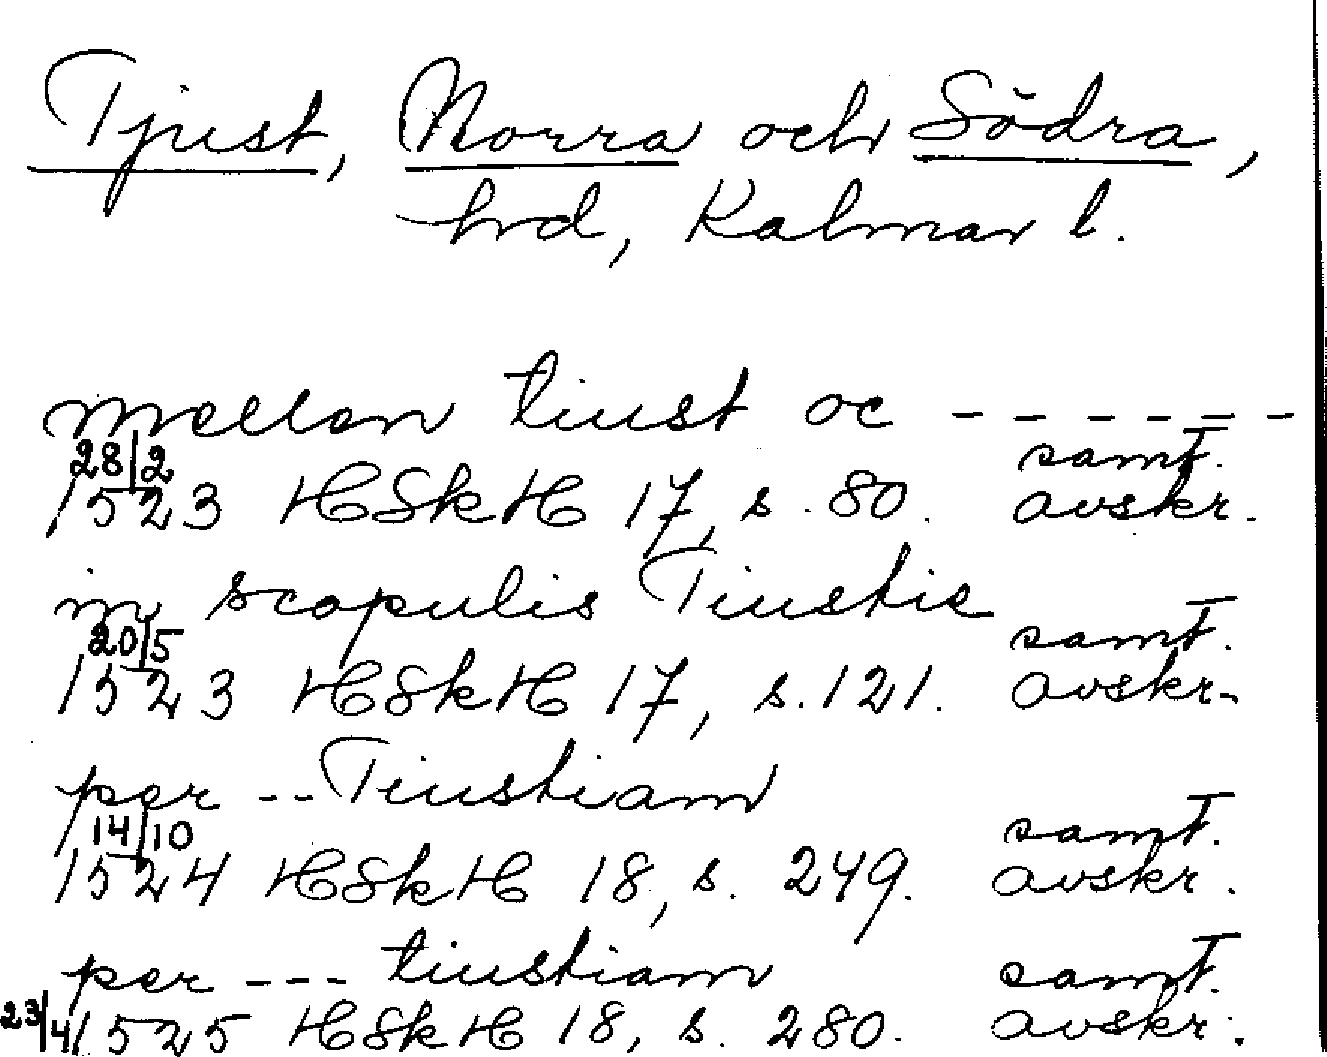 Tjust, Norra och Södra,
hrd, Kalmar l.
mellan tiust oc - - - - - -
28/2 samt.
1523 HSkH 17, s. 80. avskr.
in scopulis Tiustie
20/5 samt.
1523 HSkH 17, s. 121. avskr.
per -- Tiustiam
14/10 samt.
1524 HSkH 18, s. 249. avskr.
per --- tiustiam samt.
23/4 1525 HSkH 18, s. 280. avskr.